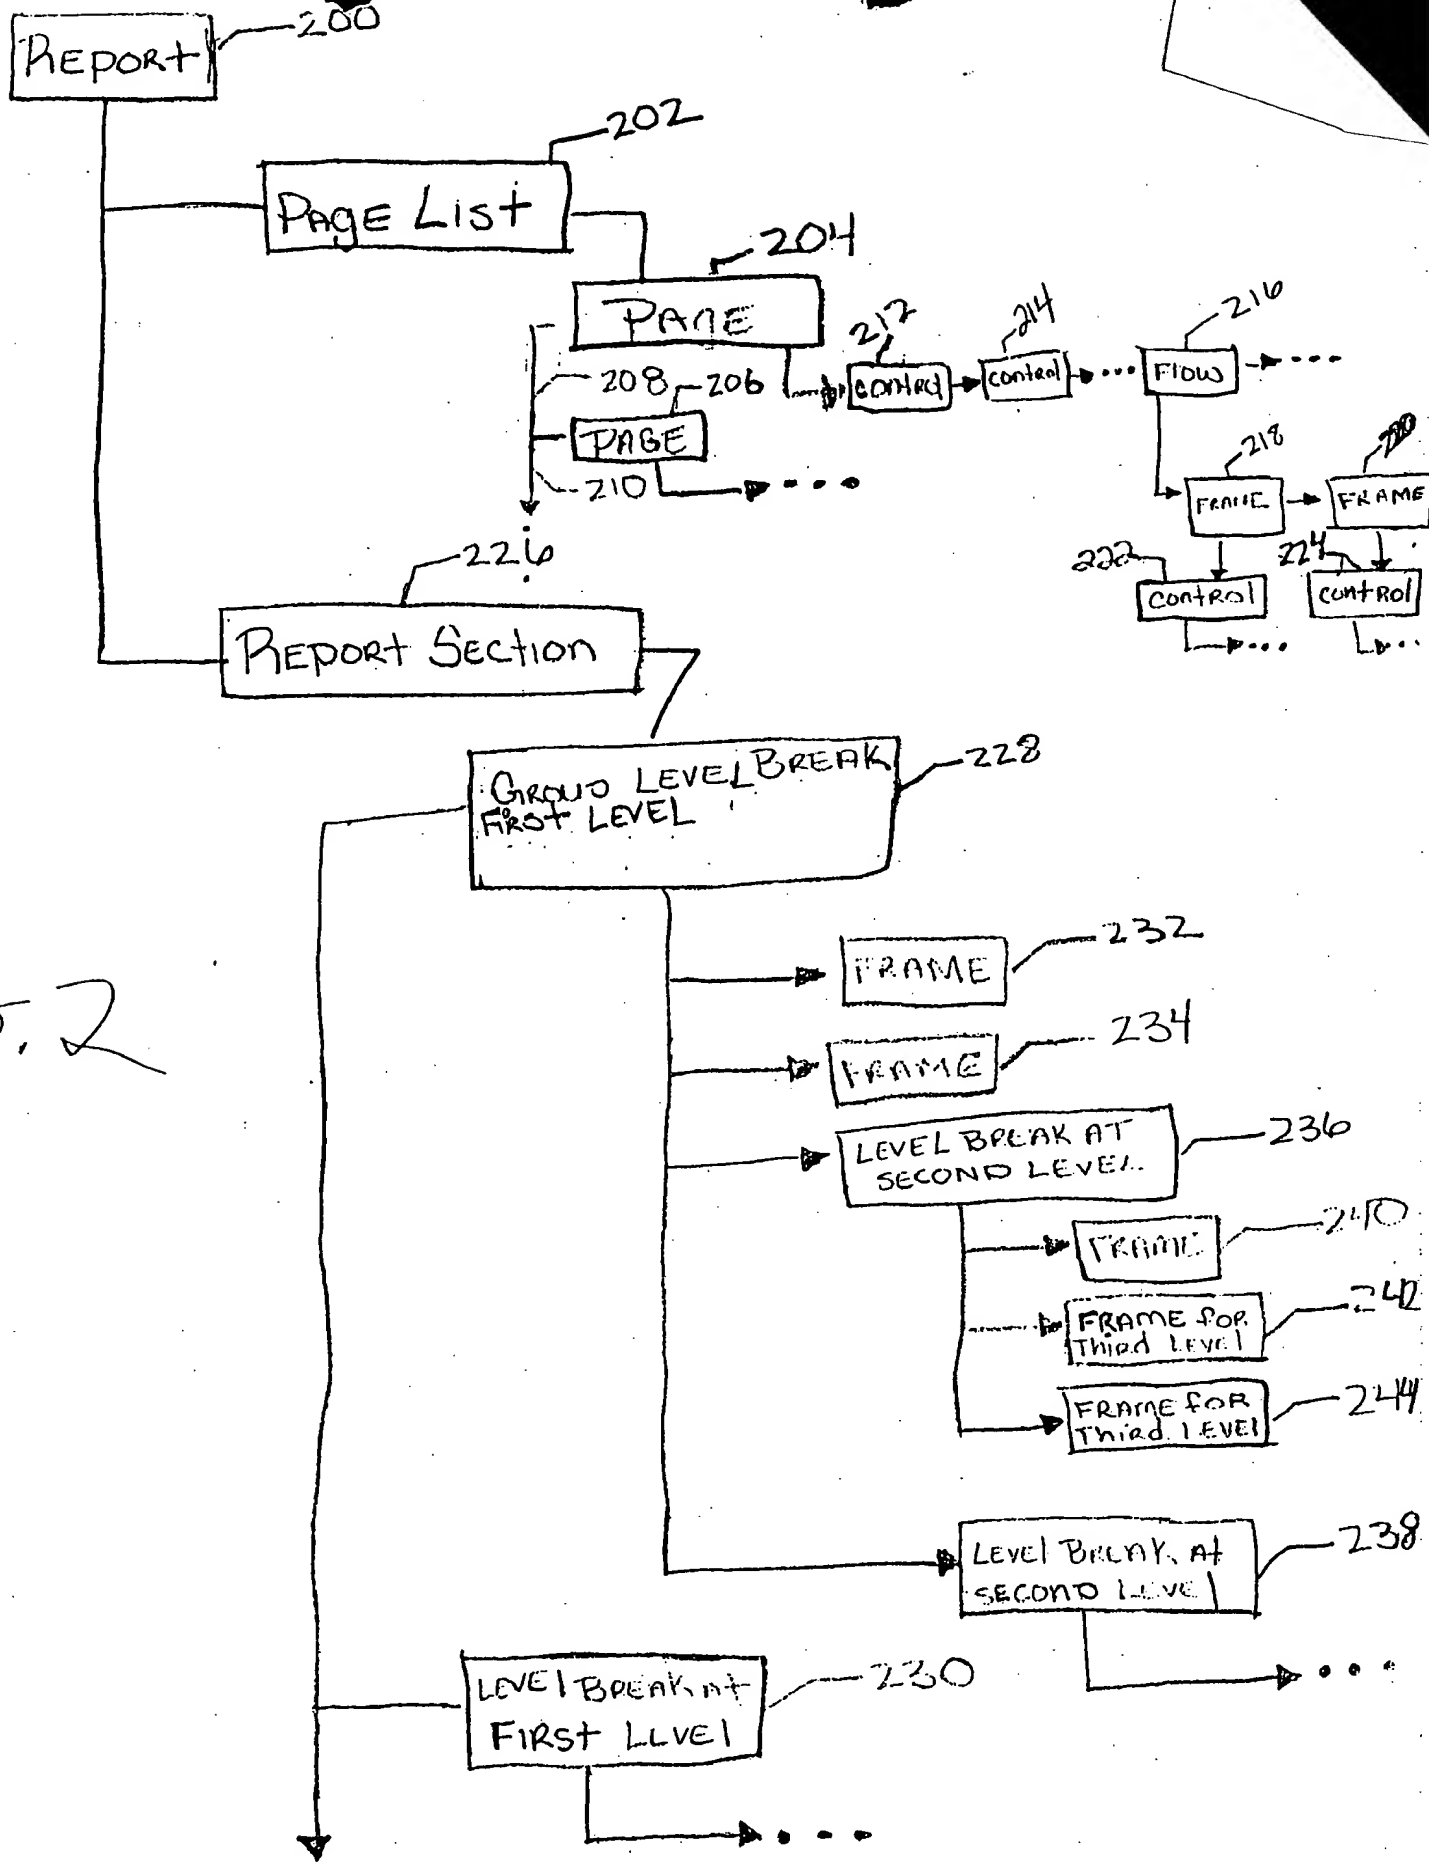 200
REPORT
202
PAGE LIST
204
PAGE
212
214
216
CONTROL
CONTROL
FLOW
208
206
PAGE
210
218
220
FRAME
FRAME
222
224
CONTROL
CONTROL
226
REPORT SECTION
GROUP LEVEL BREAK
FIRST LEVEL
228
FRAME
232
FRAME
234
LEVEL BREAK AT
SECOND LEVEL
236
FRAME
240
FRAME FOR
Third LEVEL
242
FRAME FOR
Third LEVEL
244
LEVEL BREAK At
SECOND LEVEL
238
LEVEL BREAK At
FIRST LEVEL
230
. 2